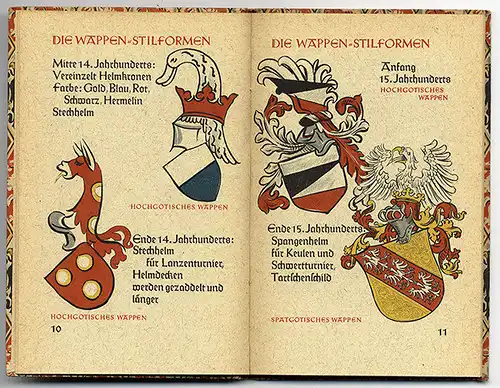 DIE WAPPEN=STILFORMEN
Mitte 14. Jahrhunderts:
Vereinzelt Helmkronen
Farbe: Gold, Blau, Rot,
Schwarz, Hermelin
Stechhelm
HOCHGOTISCHES WAPPEN
Ende 14. Jahrhunderts:
Stechhelm
für Lanzenturnier,
Helmdecken
werden gezaddelt und
länger
HOCHGOTISCHES WAPPEN
10
DIE WAPPEN=STILFORMEN
Anfang
15. Jahrhunderts
HOCHGOTISCHES
WAPPEN
Ende 15. Jahrhunderts
Spangenhelm
für Keulen und
Schwertturnier,
Tartschenschild
SPÄTGOTISCHES WAPPEN
11